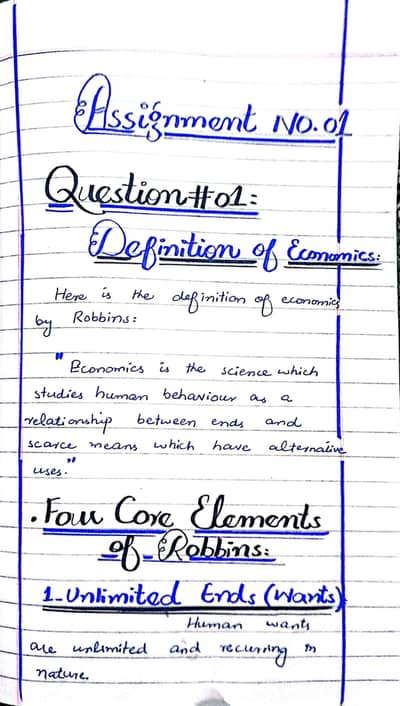 Assignment No. 01
Question #01:
Definition of Economics:
Here is the definition of economics
by Robbins:
"Economics is the science which
studies human behaviour as a
relationship between ends and
scarce means which have alternative
uses."
. Four Core Elements
of Robbins:
1-Unlimited Ends (Wants)
Human wants
are unlimited and recurring in
nature.